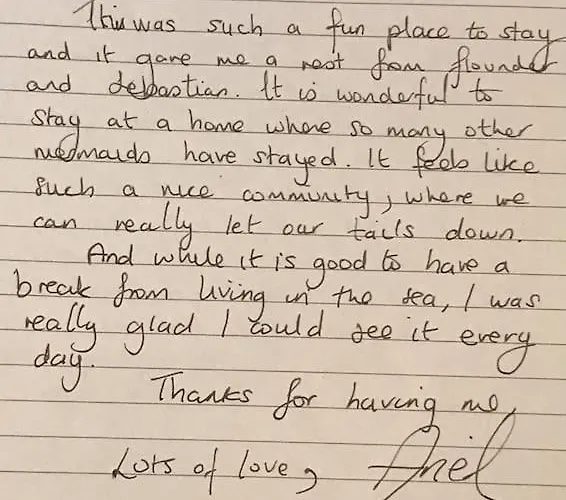 This was such a fun place to stay
and it gave me a rest from flounder
and Sebastian. It is wonderful to
stay at a home where so many other
mermaids have stayed. It feels like
such a nice community, where we
can really let our tails down.
And while it is good to have a
break from living in the sea, I was
really glad I could see it every
day.
Thanks for having me,
Lots of love, Ariel